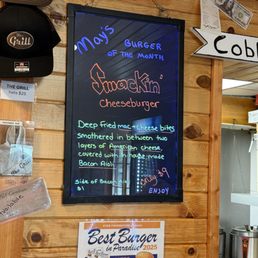 The
Grill
THE GRILL
hats $20
May's BURGER
OF THE MONTH
Smackin'
Cheeseburger
Deep Fried mac + cheese bites
smothered in between two
layers of American cheese,
covered with in house made
Bacon Aioli
Side of Bacon
$1
ENJOY
Cobb
Best Burger
in Paradise 2025